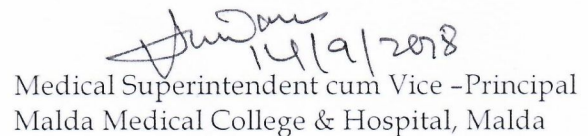 14/9/2018
Medical Superintendent cum Vice –Principal
Malda Medical College & Hospital, Malda